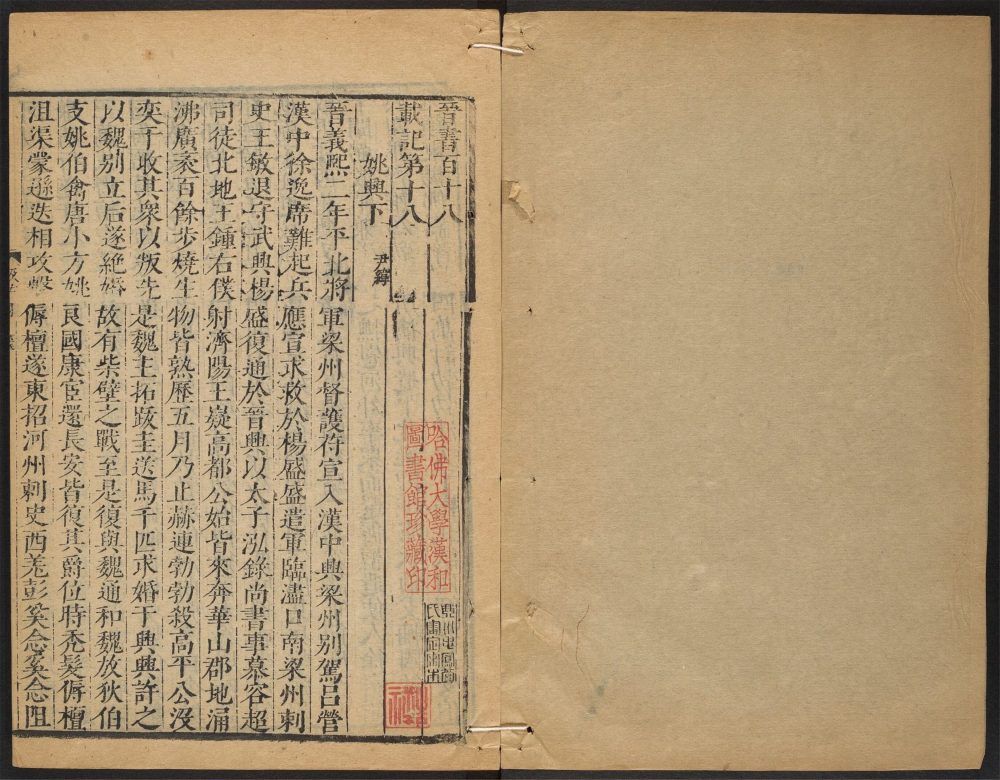 晉書百十八
載記第十八
姚興下 尹緯
晉義熙二年平北將軍梁州督護苻宣入漢中興梁州別駕呂營
漢中徐逸席難起兵應宣求救於楊盛盛遣軍臨濜口南梁州刺
史王敏退守武興楊盛復通於晉興以太子泓錄尚書事慕容超
司徒北地王鍾右僕射濟陽王嶷高都公始皆來奔華山郡地涌
沸廣袤百餘步燒生物皆熟歷五月乃止赫連勃勃殺高平公沒
奕于收其衆以叛先是魏主拓跋圭送馬千匹求婚于興興許之
以魏別立后遂絶婚故有柴壁之戰至是復與魏通和魏放狄伯
支姚伯禽唐小方姚良國康宦還長安皆復其爵位時禿髮傉檀
沮渠蒙遜迭相攻擊傉檀遂東招河州刺史西羌彭奚念奚念阻
哈佛大學漢和
圖書館珍藏印